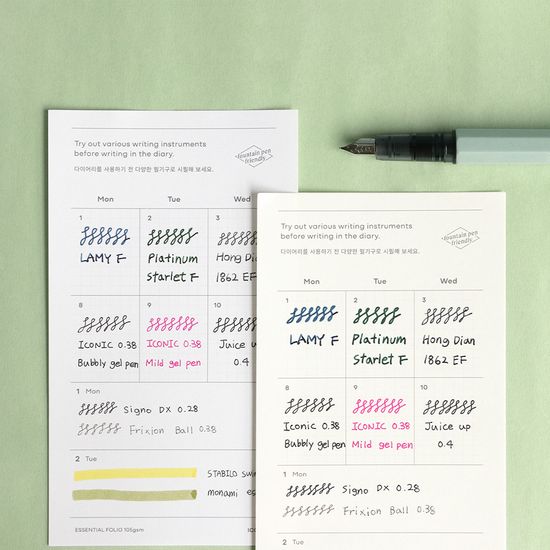 Try out various writing instruments
before writing in the diary.
다이어리를 사용하기 전 다양한 필기구로 시필해 보세요.
fountain pen
friendly
Mon Tue Wed
1 2 3
LAMY F Platinum Hong Di
Starlet F 1862 EF
8 9 10
ICONIC 0.38 ICONIC 0.38 Juice up
Bubbly gel pen Mild gel pen 0.4
1 Mon
Signo DX 0.28
Frixion Ball 0.38
2 Tue
STABILO
monami
ESSENTIAL FOLIO 105gsm
Try out various writing instruments
before writing in the diary.
다이어리를 사용하기 전 다양한 필기구로 시필해 보세요.
fountain pen
friendly
Mon Tue Wed
1 2 3
LAMY F Platinum Hong Dian
Starlet F 1862 EF
8 9 10
Iconic 0.38 ICONIC 0.38 Juice up
Bubbly gel pen Mild gel pen 0.4
1 Mon
Signo DX 0.28
Frixion Ball 0.38
2 Tue